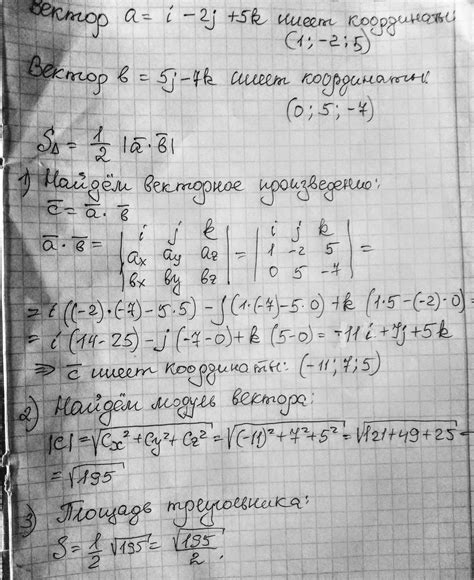 Вектор a = i - 2j + 5k имеет координаты
(1; -2; 5)
Вектор b = 5j - 7k имеет координаты
(0; 5; -7)
S△ = 1/2 |a̅ · b̅|
1) Найдём векторное произведение:
c̅ = a̅ · b̅
a̅ · b̅ = | i j k ; ax ay az ; bx by bz | = | i j k ; 1 -2 5 ; 0 5 -7 | =
= i ((-2)·(-7) - 5·5) - j (1·(-7) - 5·0) + k (1·5 - (-2)·0) =
= i (14 - 25) - j (-7 - 0) + k (5 - 0) = -11i + 7j + 5k
⇒ c̅ имеет координаты: (-11; 7; 5)
2) Найдём модуль вектора:
|c| = √(cx² + cy² + cz²) = √((-11)² + 7² + 5²) = √(121 + 49 + 25) =
= √195
3) Площадь треугольника:
S = 1/2 √195 = √195/2.